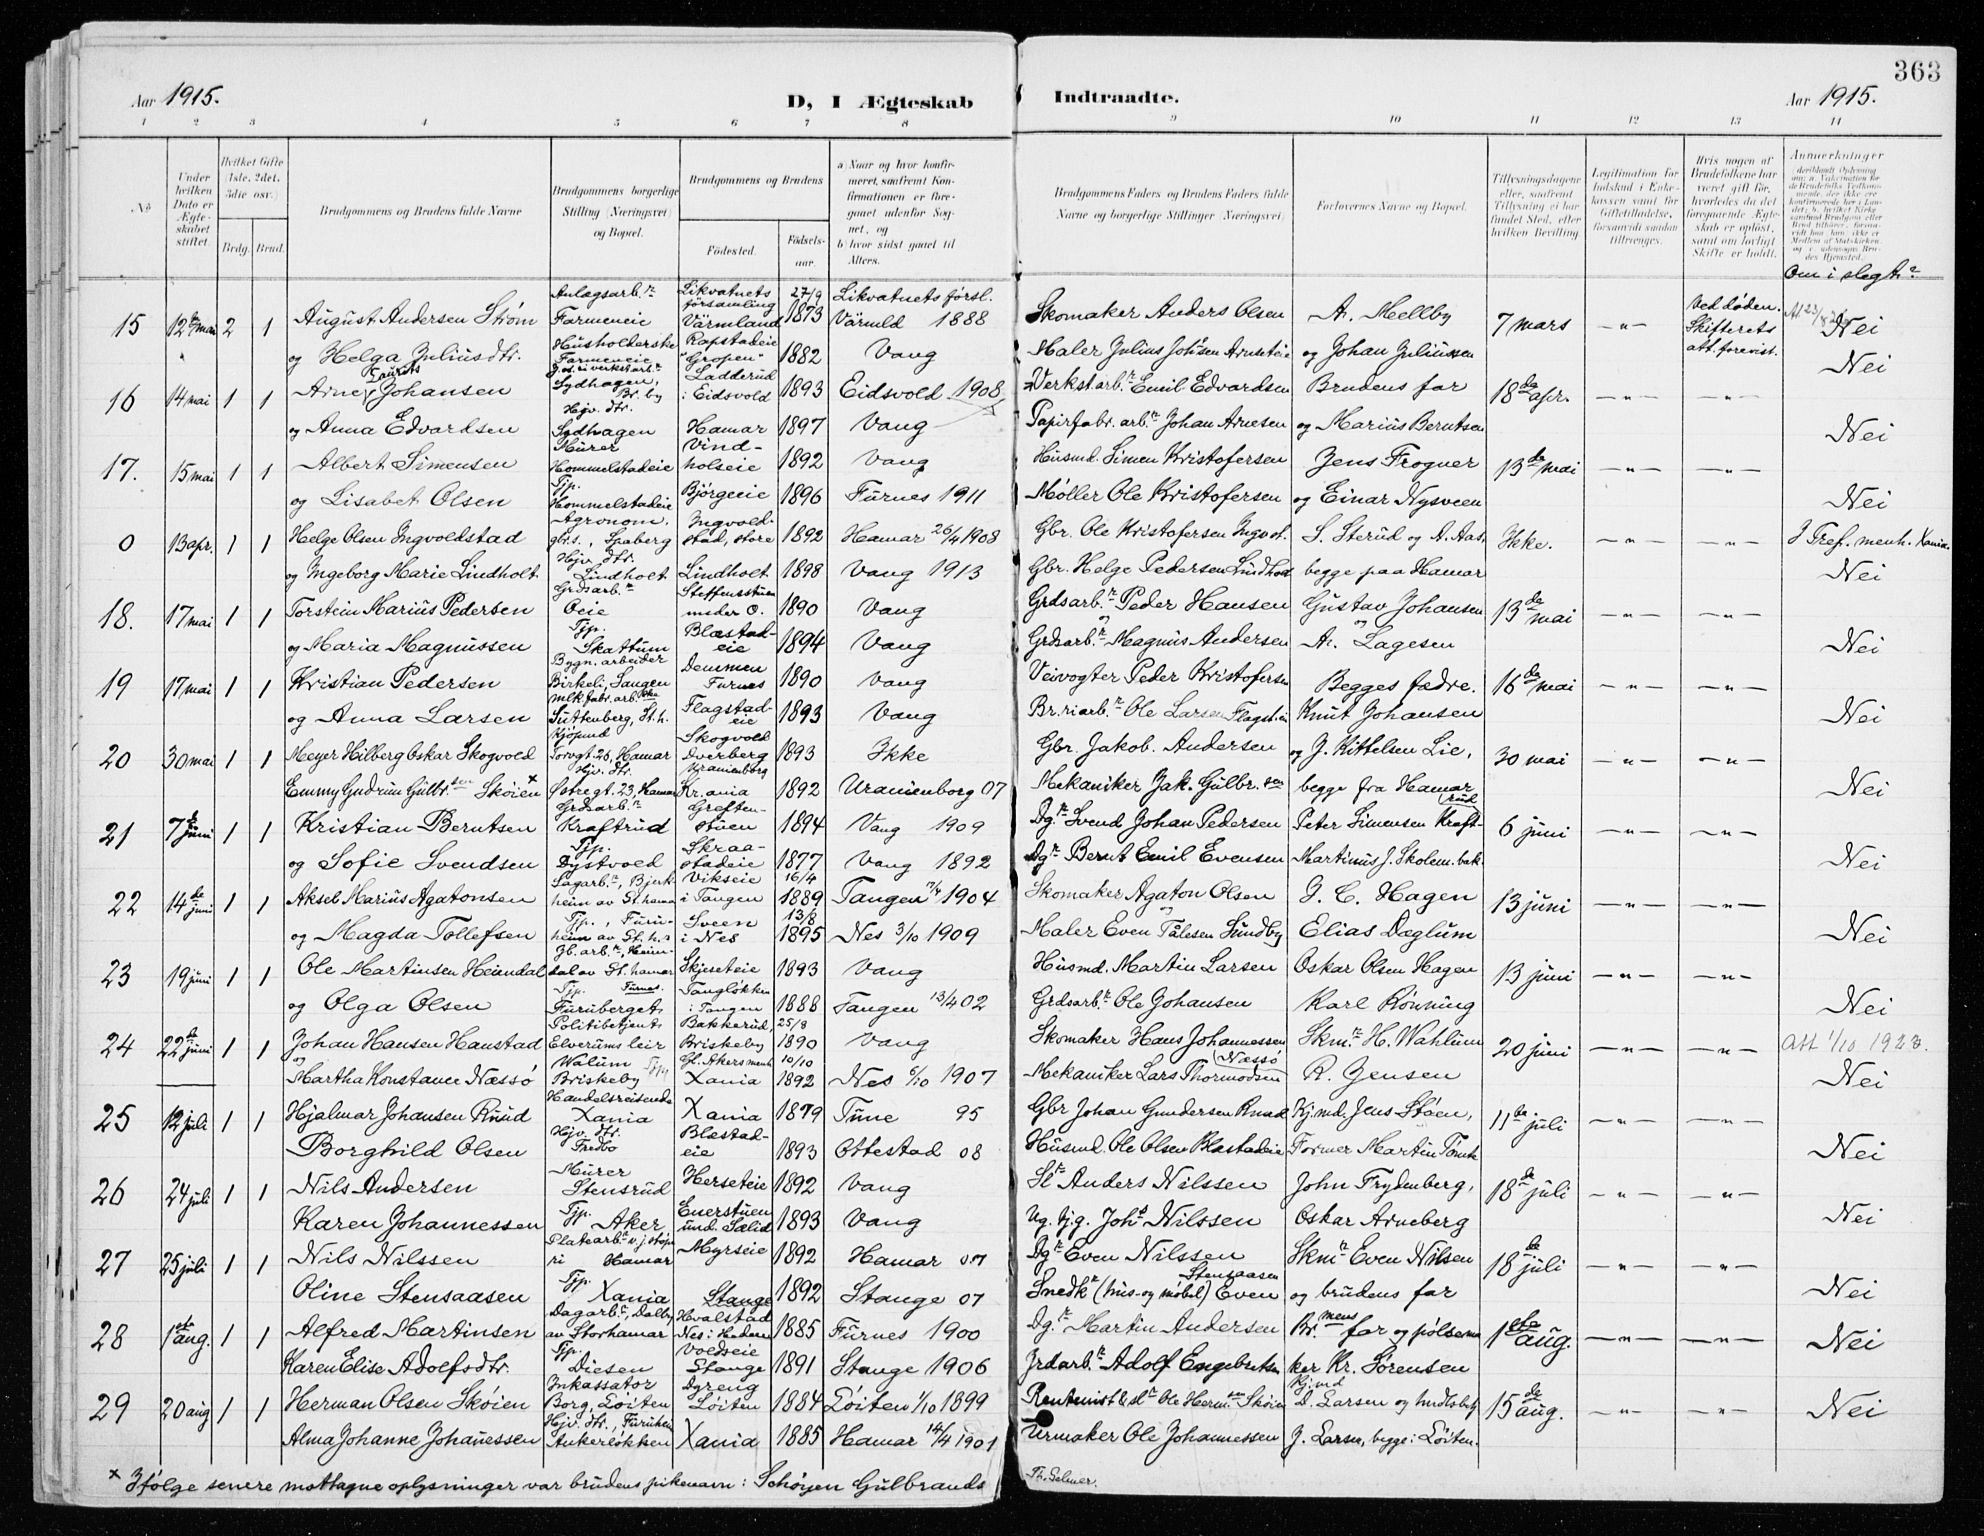 363
Aar 1915. D, I Ægteskab Indtraadte. Aar 1915.
1 2 3 4 5 6 7 8 9 10 11 12 13 14
No
Under hvilken Dato er Ægteskabet stiftet.
Hvilket Gifte (1ste, 2det, 3die osv.)
Brdg. Brud.
Brudgommens og Brudens fulde Navne
Brudgommens borgerlige Stilling (Næringsvei) og Bopæl.
Brudgommens og Brudens
Fødested. Fødselsaar.
a) Naar og hvor konfirmeret, saafremt Konfirmationen er foregaaet udenfor Sognet, og
b) hvor sidst gaaet til Alters.
Brudgommens Faders og Brudens Faders fulde Navne og borgerlige Stillinger (Næringsvei)
Forlovernes Navne og Bopæl.
Tillysningsdagene eller, saafremt Tillysning ei har fundet Sted, efter hvilken Bevilling.
Legitimation for Indskud i Enkekassen samt for Giftetilladelse, forsaavidt saadan tiltrænges.
Hvis nogen af Brudefolkene har været gift før, hvorledes da det foregaaende Ægteskab er opløst, samt om lovligt Skifte er holdt.
Anmerkninger
Om i slegt?
15 12te mai 2 1 August Andersen Strøm Anlægsarb.r Farmeneie Likvatnets församling Värmland 27/9 1873 Likvatnets försl. Värmld 1888 Skomaker Anders Olsen A. Mellby 7 mars -"- Ved døden. Skifterets att. forevist. Nei
og Helga Juliusdtr. Husholderske Farmeneie Rapstadeie "Gropen" 1882 Vang Maler Julius Johsen Arneseteie og Johan Juliussen Nei
16 14 mai 1 1 Arne Laurits Johansen Sydhagen, Br. by Ladderud i Eidsvold 1893 Eidsvold 1908 Verkst.arb.r Emil Edvardsen Brudens far 18de apr. -"- -"-
og Anna Edvardsen Hjv. dtr. Sydhagen Hamar 1897 Vang Papirfabr. arb.r Johan Arnesen og Marius Berntsen Nei
17. 15 mai 1 1 Albert Simensen Murer Hommelstadeie Vindholseie 1892 Vang Husmd. Simen Kristofersen Jens Frogner 13de mai -"- -"-
og Lisabet Olsen Tjp. Hommelstadeie Bjørgeeie 1896 Furnes 1911 Møller Ole Kristofersen og Einar Nysveen Nei
0 13 apr. 1 1 Helge Olsen Ingvoldstad Agronom, gbrs., Spaberg Ingvoldstad, store 1892 Hamar 26/4 1908 Gbr. Ole Kristofersen Ingvst. S. Sterud og A. Aas, Ikke. -"- -"- I Tref. menh. Xania.
og Ingeborg Marie Lindholt Hjv. dtr. Lindholt Lindholt 1898 Vang 1913 Gbr. Helge Pedersen Lindholt begge paa Hamar Nei
18. 17 mai 1 1 Torstein Marius Pedersen Grdsarb.r Oeie Steffensstuen 1890 Vang Grdsarb.r Peder Hansen Gustav Johansen 13de mai -"- -"-
og Maria Magnussen Tjp. Skattum Blæstadeie 1894 Vang Grdsarb.r Magnus Andersen A. Lagesen Nei
19 17 mai 1 1 Kristian Pedersen Bygn. arbeider Birkeli, Sangen Demmen Furnes 1890 Vang Veivogter Peder Kristofersen Begges fædre. 16de mai -"- -"-
og Anna Larsen Mlkfabr. arb.ske Suttenberg, St.h. Flagstadeie 1893 Vang Br.riarb.r Ole Larsen Flagst.ei Knut Johansen Nei
20 30 mai 1 1 Meyer Hilberg Oskar Skogvold Kjøpmd Torvgt 26, Hamar Skogvold Dverberg 1893 Ikke Gbr. Jakob Andersen og J. Kittelsen Lie, 30 mai -"- -"-
Emmy Gudrun Gulbr.sen Skøien x Hjv. dtr. Østregt. 23, Hamar Uranienborg Kr.ania 1892 Uranienborg 07 Mekaniker Jak. Gulbr.sen begge fra Hamar Nei
21 7de juni 1 1 Kristian Berntsen Grdsarb.r Kraftrud Greftenstuen 1894 Vang 1909 Dg.r Svend Johan Pedersen Peter Simensen Kraftrud 6 juni -"- -"-
og Sofie Svendsen Tjp. Dystvold Skraastadeie 1877 Vang 1892 Dg.r Bernt Emil Evensen Martinus J. Skolem.bak. Nei
22 14de juni 1 1 Aksel Marius Agatonsen Sagarb.r, Bjerkheim av St.hamar Vikseie i Tangen 16/4 1889 Tangen 17/4 1904 Skomaker Agaton Olsen J. C. Hagen 13 juni -"- -"-
og Magda Tollefsen Tjp., Furuheim av St.h.r Sveen i Nes 13/8 1895 Nes 3/10 1909 Maler Even Tålesen Sundby Elias Dæglum Nei
23 19 juni 1 1 Ole Martinsen Heimdal Gb. arb.r, Heimdal av St.hamar Skjeseteie 1893 Vang Husmd. Martin Larsen Oskar Olsen Hagen 13 juni -"- -"-
og Olga Olsen Tjp. Furnes. Furuberget Tangløkken i Tangen 1888 Tangen 13/4 02 Grdsarb.r Ole Johansen Karl Rønning Nei
24 22de juni 1 1 Johan Hansen Hanstad Politibetjent Elverumsleir Bakkerud, Briskeby 25/8 1890 Vang Skomaker Hans Johannessen Skm.r H. Wahlum 20 juni -"- -"- Att 1/10 1923.
og Martha Konstance Næssø Walum Briskeby Gl. Akers menh Xania 10/10 1892 Nes 6/10 1907 Mekaniker Lars Thormodsen Næssø R. Jensen Nei
25 12 juli 1 1 Hjalmar Johansen Ruud Handelsreisende Xania Xania 1879 Tune 95 Gbr Johan Gundersen Ruud Kj.md. Jens Støen, 11te juli -"- -"-
Borghild Olsen Hjv. dtr. Fredbo Blæstadeie 1893 Ottestad 08 Husmd. Ole Olsen Blæstadeie Former Martin Tomte Nei
26 24 juli 1 1 Nils Andersen Murer Stensrud Herseteie 1892 Vang Sl.r Anders Nilssen John Frydenberg, 18de juli -"- -"-
Karen Johannessen Tjp. Aker Enerstuen und. Sælid 1893 Vang Ug. tj.g. Joh.s Nilssen Oskar Arneberg Nei
27 25 juli 1 1 Nils Nilssen Platearb.r v. j.støperi Hamar Myrseie 1892 Hamar 07 Dg.r Even Nilssen Skm.r Even Nilsen 18de juli -"- -"-
Oline Stensaasen Tjp. Xania Stange 1892 Stange 07 Snedk.r (hus- og møbel) Even Stensaasen og brudens far Nei
28 1ste aug. 1 1 Alfred Martinsen Dagarb.r, Dalby av Storhamar Hvalstad Nes i Hedem 1885 Furnes 1900 Dg.r Martin Andersen Br.mens far og pølsema 1ste aug. -"- -"- Nei
Karen Elise Adolfsdtr. Tjp. Diesen Voldseie Stange 1891 Stange 1906 Jrdarb.r Adolf Engebretsen ker Kr. Sørensen
29 20 aug 1 1 Herman Olsen Skøien Inkassator Borg, Løiten Dyreng Løiten 1884 Løiten 1/10 1899 Rentenist & sl.r Ole Herm.sen Skøien Kj.md D. Larsen og hndlsbetj 15de aug. -"- -"- Nei
Alma Johanne Johanessen Hjv. dtr., Furuheim Ankerløkken Xania 1885 Hamar 14/4 1901 Urmaker Ole Johannessen J. Larsen, begge i Løiten.
x Ifølge senere mottagne oplysninger var brudens pikenavn: Schøyen Gulbrands
Th. Selmer.